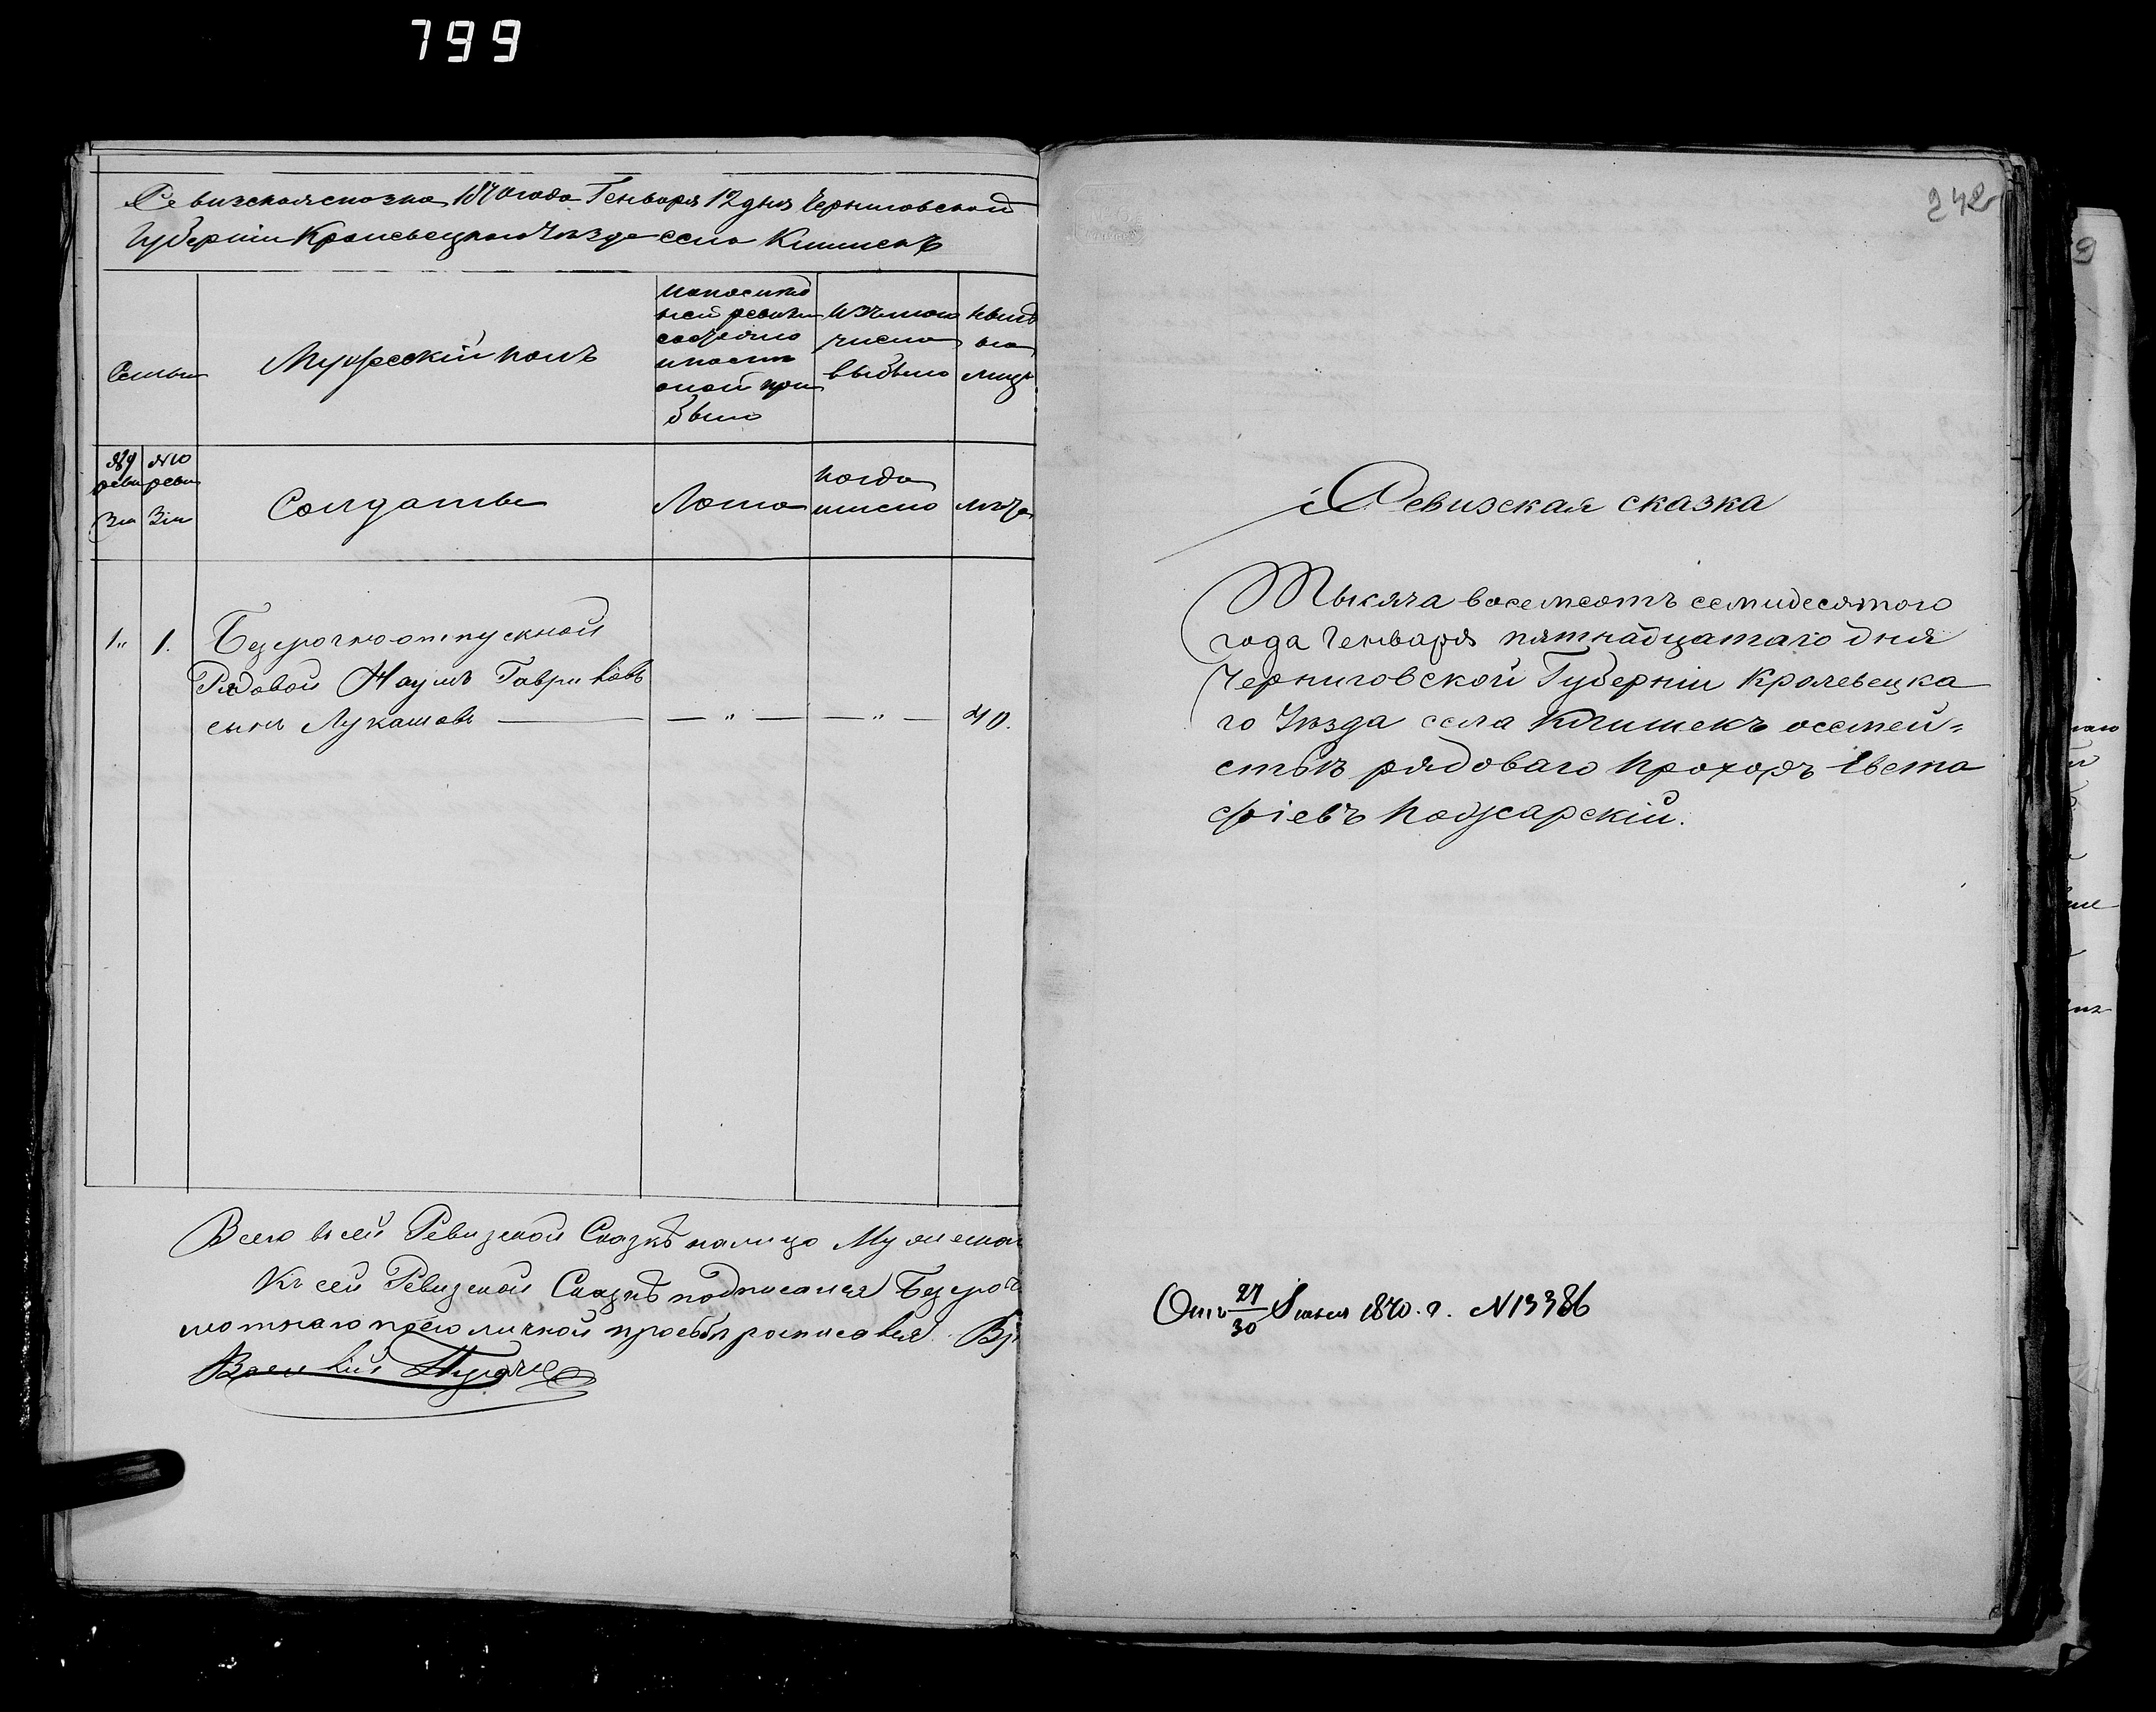 799
Ревизская сказка 1870 года Генваря 12 дня Черниговской
Губернии Кролевецкаго Уезда села Клишекъ
Семьи
Мужескій полъ
По послед
ней ревизіи
состояло
и после
оной при
было
Изъ того
числа
выбыло
Ныне
на
лицо
№9 реви зіи
№10 реви зіи
Солдаты
Лета
Когда
именно
Лета
1„ 1. Безсрочноотпускной
Рядовой Наумъ Гавриловъ
сынъ Лукашовъ — — „ — — „ — 40.
Всего в сей Ревизской Сказкѣ налицо Мужеска
Къ сей Ревизской Сказкѣ подписался Безсроч
мотнаго по его личной прозьбѣ росписався
Василій
242
Ревизская сказка
Тысяча восемсотъ семидесятого
года Генваря пятнадцатаго дня
Черниговской Губерніи Кролевецка
го Уѣзда села Клишекъ осемей=
ствѣ рядоваго Прохоръ Евста
фіевъ Пожарскій.
Отъ 27/30 1870. г. №13386